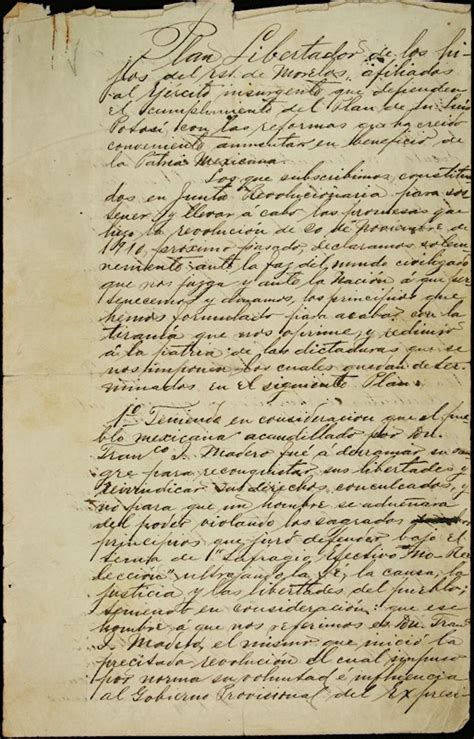 Plan Libertador de los hi-
jos del Est. de Morelos, afiliados
al Ejército insurgente que defienden
el cumplimiento del Plan de Sn. Luis
Potosí, con las reformas que ha creido
conveniente aumentar en beneficio de
la Patria Mexicana.
Los que subscribimos, constitui-
dos en Junta Revolucionaria para sos-
tener y llevar a cabo las promesas que
hizo la revolución de 20 de Noviembre de
1910, próximo pasado, declaramos solem-
nemente ante la faz del mundo civilizado
que nos juzga y ante la Nación á que per-
tenecemos y amamos, los principios que
hemos formulado para acabar con la
tiranía que nos oprime y redimir
á la patria de las dictaduras que se
nos imponen los cuales quedan deter-
minados en el siguiente Plan:
1º Teniendo en consideración que el pue-
blo mexicano acaudillado por Dn.
Franco. I. Madero fué á derramar su san-
gre para reconquistar sus libertades y
reivindicar sus derechos conculcados, y
no para que un hombre se adueñara
del poder violando los sagrados
principios que juró defender bajo el
lema de "Sufragio Efectivo" "No Ree-
lección", ultrajando la fé, la causa, la
justicia y las libertades del pueblo;
teniendo en consideración: que ese
hombre á que nos referimos es Dn. Franco.
I. Madero, el mismo que inició la
precitada revolución el cual impuso
por norma su voluntad é influencia
al Gobierno Provisional del Ex presi-